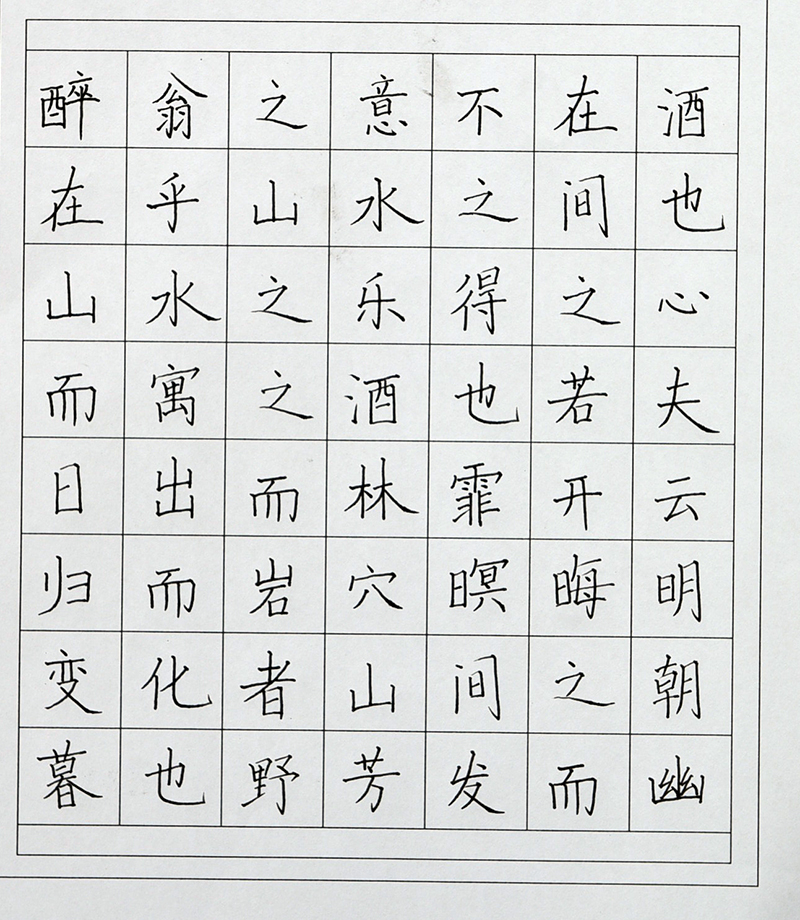 醉翁之意不在酒
在乎山水之间也
山水之乐得之心
而寓之酒也若夫
日出而林霏开云
归而岩穴暝晦明
变化者山间之朝
暮也野芳发而幽